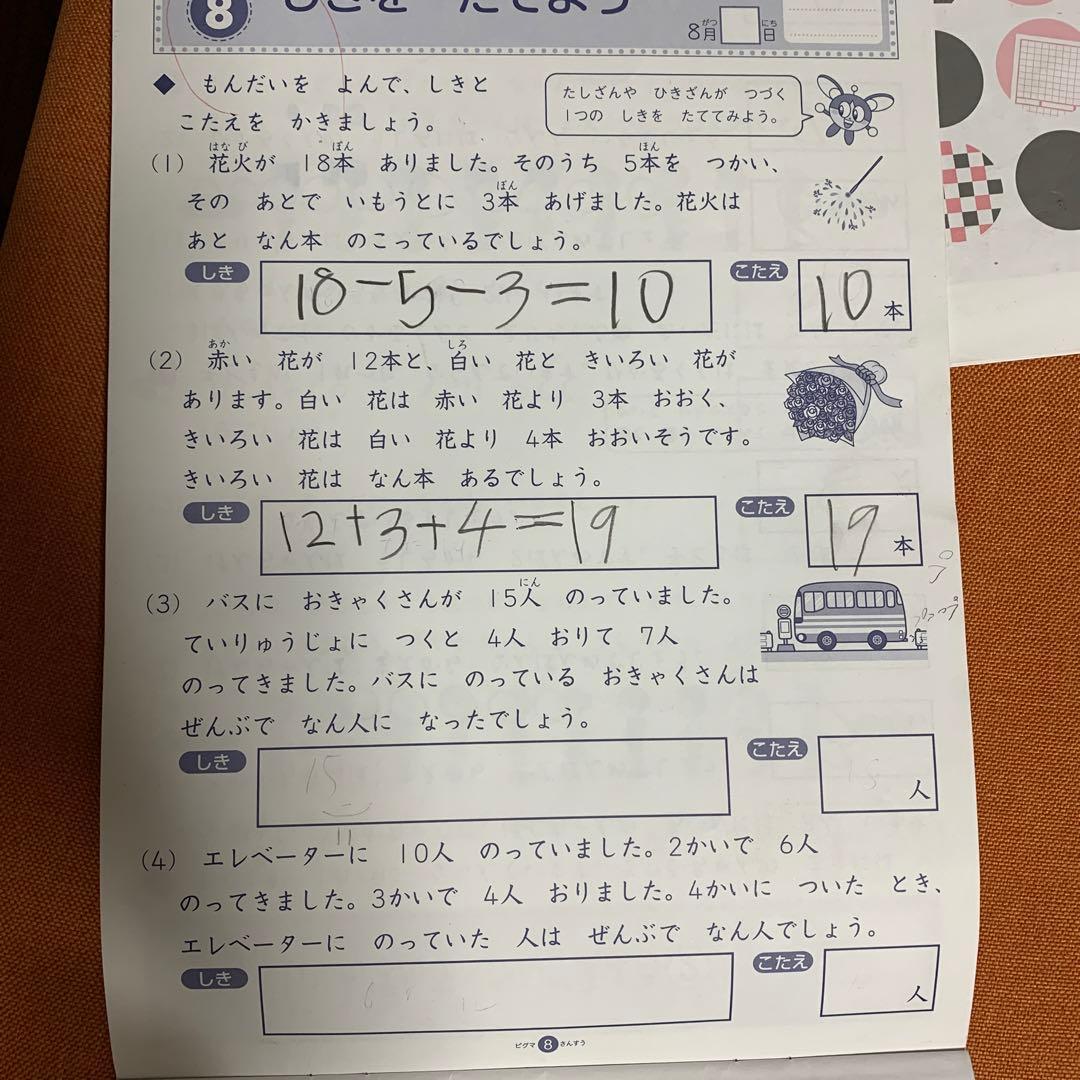 8 しきを たてよう
8月 日
がつ にち
◆ もんだいを よんで、しきと
こたえを かきましょう。
たしざんや ひきざんが つづく
1つの しきを たててみよう。
はな び ぽん ほん
(1) 花火が 18本 ありました。そのうち 5本を つかい、
ぼん
その あとで いもうとに 3本 あげました。花火は
あと なん本 のこっているでしょう。
しき 18-5-3=10 こたえ 10本
あか しろ
(2) 赤い 花が 12本と、白い 花と きいろい 花が
あります。白い 花は 赤い 花より 3本 おおく、
きいろい 花は 白い 花より 4本 おおいそうです。
きいろい 花は なん本 あるでしょう。
しき 12+3+4=19 こたえ 19本
にん
(3) バスに おきゃくさんが 15人 のっていました。
ていりゅうじょに つくと 4人 おりて 7人
のってきました。バスに のっている おきゃくさんは
ぜんぶで なん人に なったでしょう。
しき 15 こたえ 人
11
(4) エレベーターに 10人 のっていました。2かいで 6人
のってきました。3かいで 4人 おりました。4かいに ついた とき、
エレベーターに のっていた 人は ぜんぶで なん人でしょう。
しき こたえ 人
ピグマ 8 さんすう